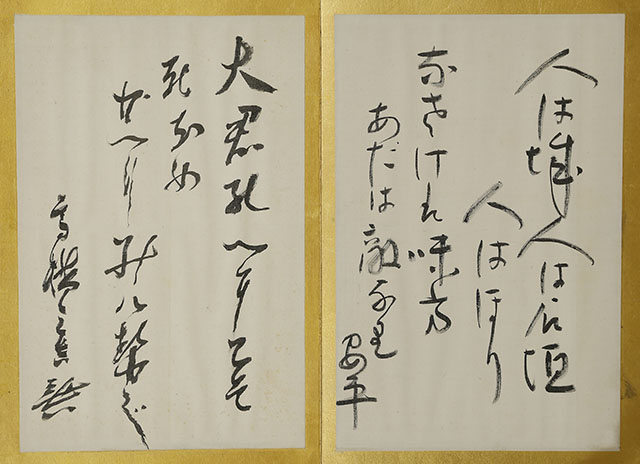 人は城人は石垣
人はほり
なさけは味方
あだは敵なり
安平
大君のへにこそ
死なめ
かへりみハせじ
高橋